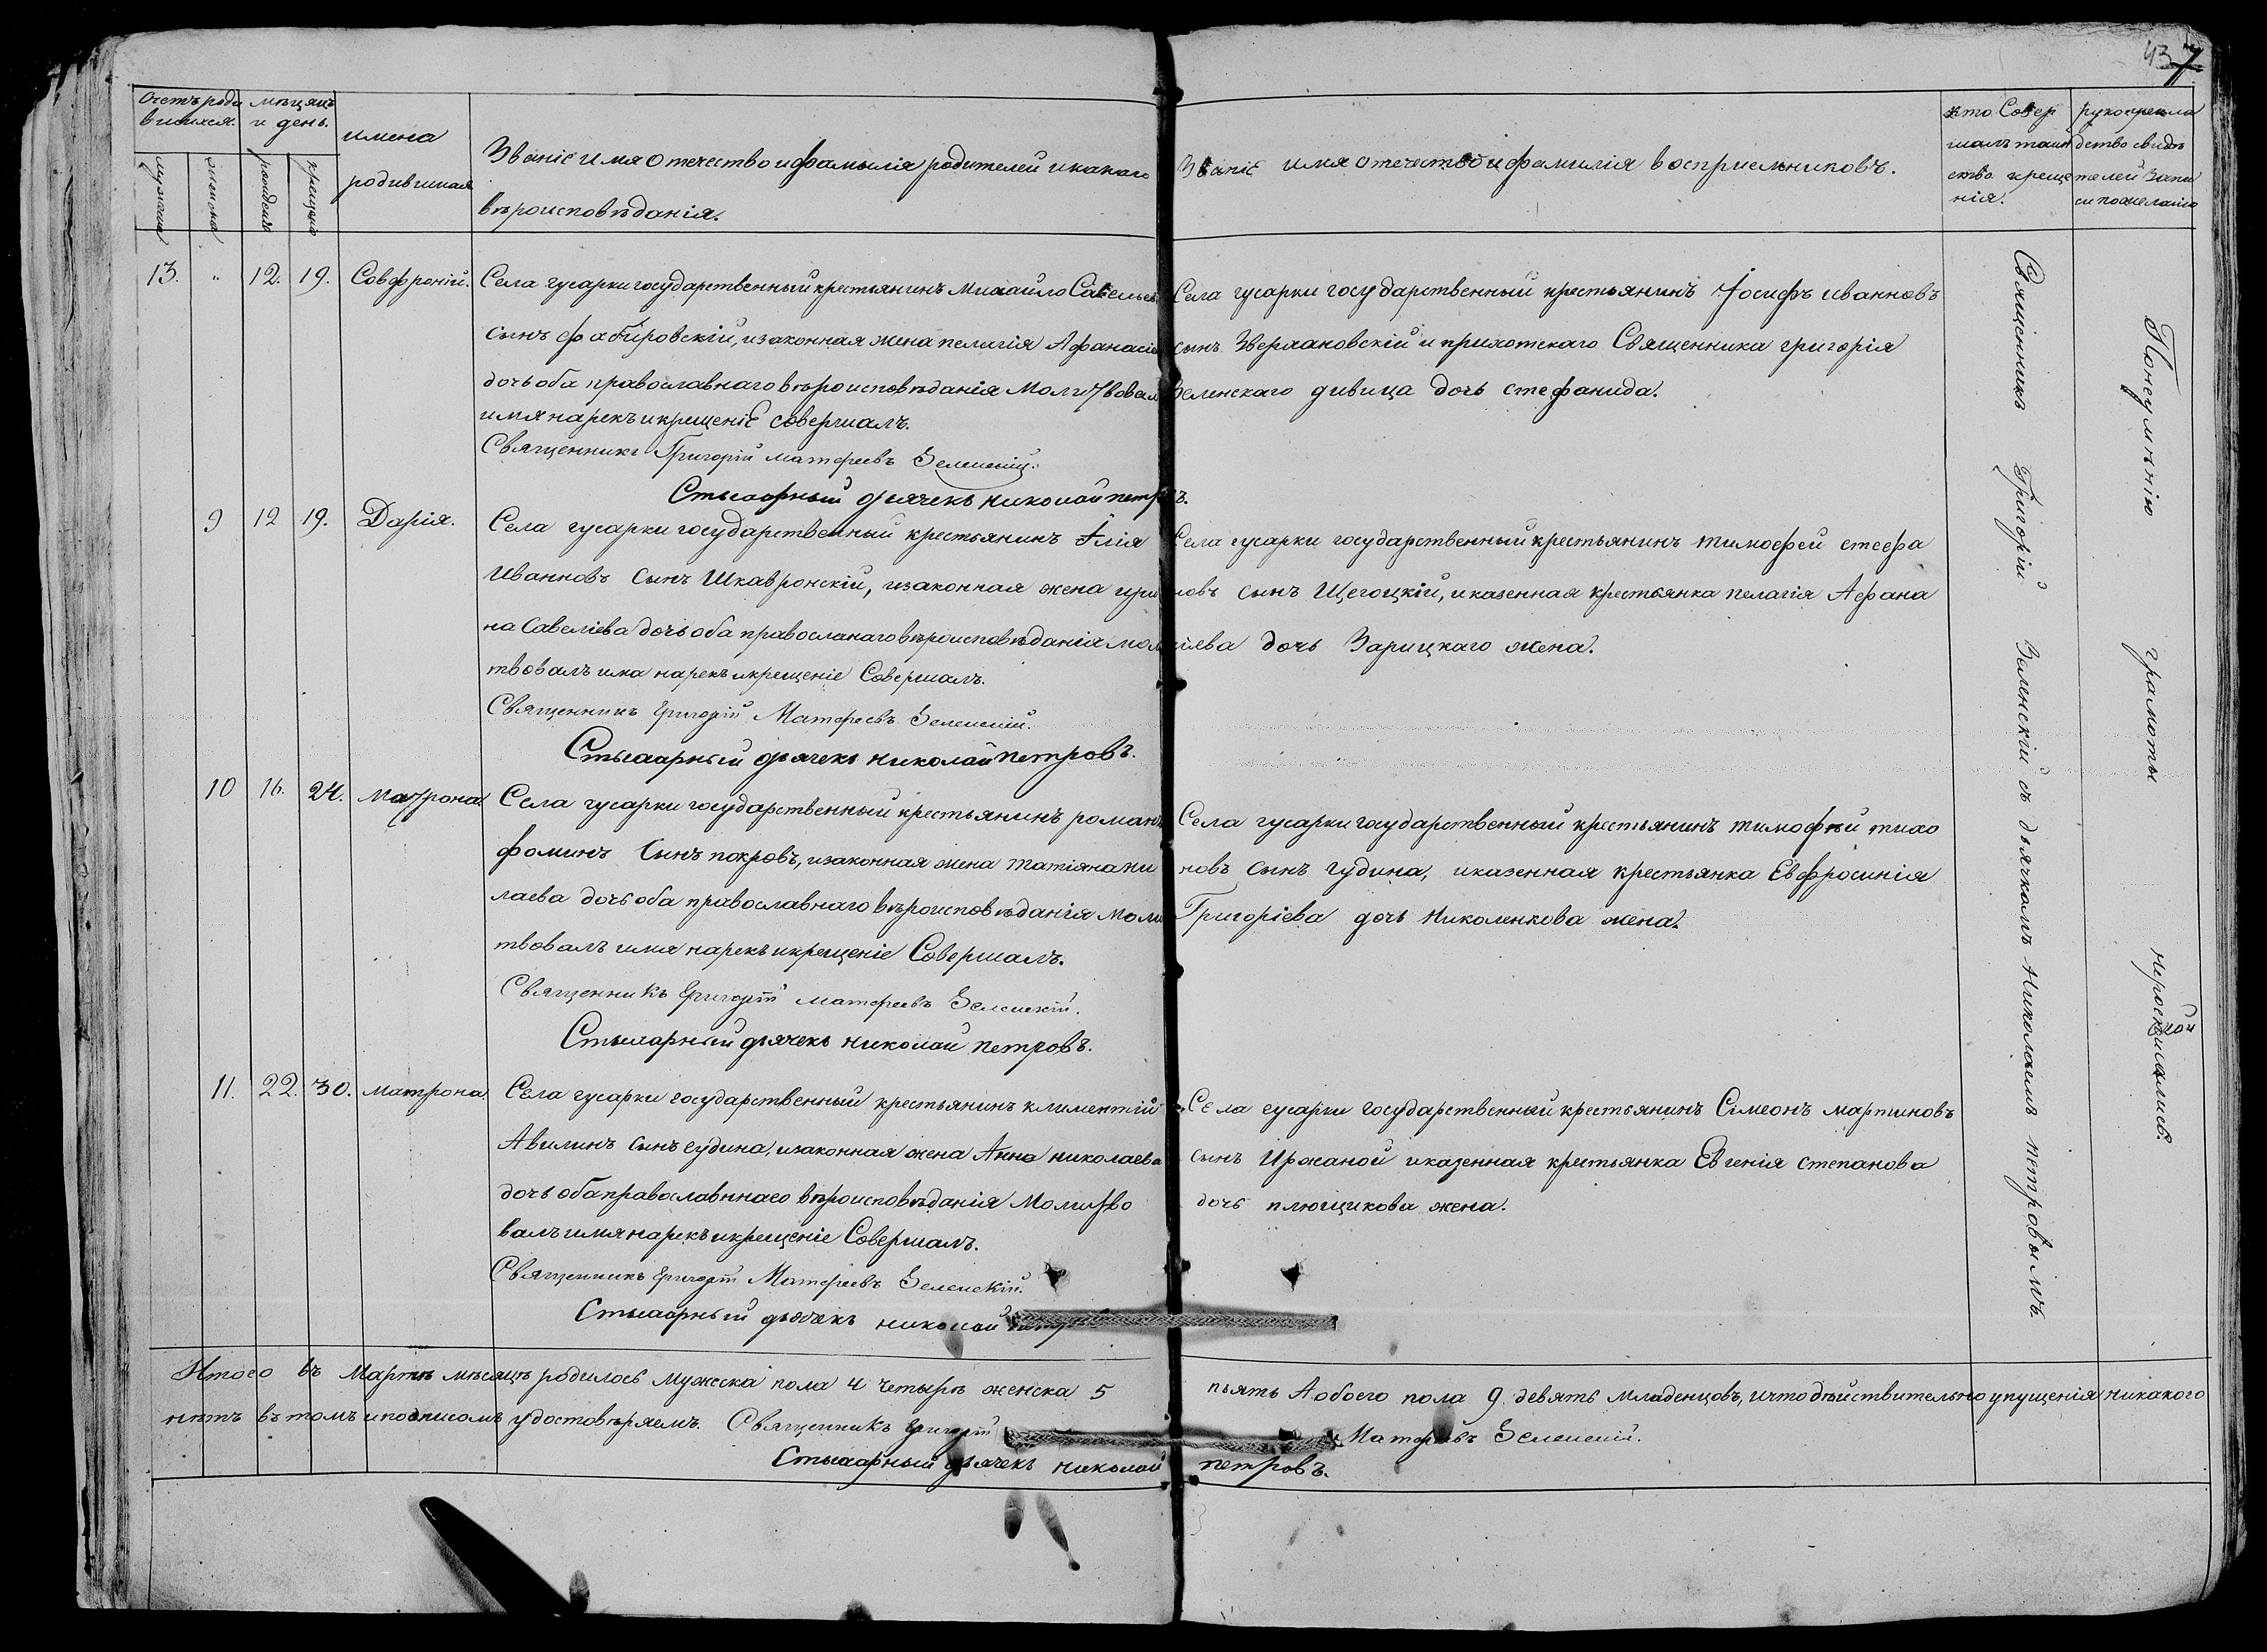 43 7
Счетъ роди
вшихся.
мѣсяцъ
и день.
имена
родившихся
Званіе имя отечество и фамилія родителей и какаго
вѣроисповѣданія.
Званіе имя отечество и фамилія воспріемниковъ.
кто Совер
шалъ таин
ство креще
нія.
рукоприкла
дство свидѣ
телей запи
си по желанію
мужеска
женска
рожденія
крещенія
13. " 12. 19. Совфроній.
Села гусарки государственный крестьянинъ Михаило Савельевъ
сынъ фабировскій, и законная жена пелагія Афанасіева
дочь оба православнаго вѣроисповѣданія Молитвовалъ
имя нарекъ и крещеніе совершалъ.
Священникъ Григорій Матфеевъ Зеленскій.
Стихарный дьячекъ николай петровъ.
Села гусарки государственный крестьянинъ Іосифъ иванновъ
сынъ Звержановскій и приходскаго Священника григорія
Зеленскаго дивица дочь стефанида.
9 12 19. Дарія.
Села гусарки государственный крестьянинъ Ілія
Иванновъ сынъ Шкавронскій, и законная жена ири
на Савеліева дочь оба православнаго вѣроисповѣданія моли
твовалъ имя нарекъ и крещеніе Совершалъ.
Священникъ Григорій Матфеевъ Зеленскій.
Стихарный дьячекъ николай петровъ.
Села гусарки государственный крестьянинъ тимофей стефа
новъ сынъ Щегоцкій, и казенная крестьянка пелагія Афана
сіева дочь Зарицкаго жена.
10 16. 24. Матрона.
Села гусарки государственный крестьянинъ романъ
фоминъ Сынъ покровъ, и законная жена татіяна ни
лаева дочь оба православнаго вѣроисповѣданія Моли
твовалъ имя нарекъ и крещеніе Совершалъ.
Священникъ Григорій Матфеевъ Зеленскій.
Стихарный дьячекъ николай петровъ.
Села гусарки государственный крестьянинъ тимофѣй тихо
новъ сынъ гудина, и казенная крестьянка Евфросинія
Григоріева дочь Николенкова жена.
11. 22. 30. матрона
Села гусарки государственный крестьянинъ климентій
Авилинъ сынъ гудина, и законная жена Анна николаева
дочь оба православннаго вѣроисповѣданія Молитво
валъ имя нарекъ и крещеніе Совершалъ.
Священникъ Григорій Матфеевъ Зеленскій.
Стихарный дьячекъ николай
Села гусарки государственный крестьянинъ Сімеонъ мартиновъ
сынъ Иржаной и казенная крестьянка Евгенія степанова
дочь плющикова жена.
Священникъ Григорій Зеленскій съ дьячкомъ Николаемъ петровымъ.
Понеумѣнію грамоты
Итого въ Мартѣ мѣсяцѣ родилось мужеска пола 4 четырѣ женска 5 пьять А обоего пола 9. девять младенцовъ, и что дѣйствительно упущенія никакого
нѣтъ въ томъ и подписомъ удостовѣряемъ. Священникъ Григорій Матфеевъ Зеленскій.
Стихарный дьячекъ николай петровъ.